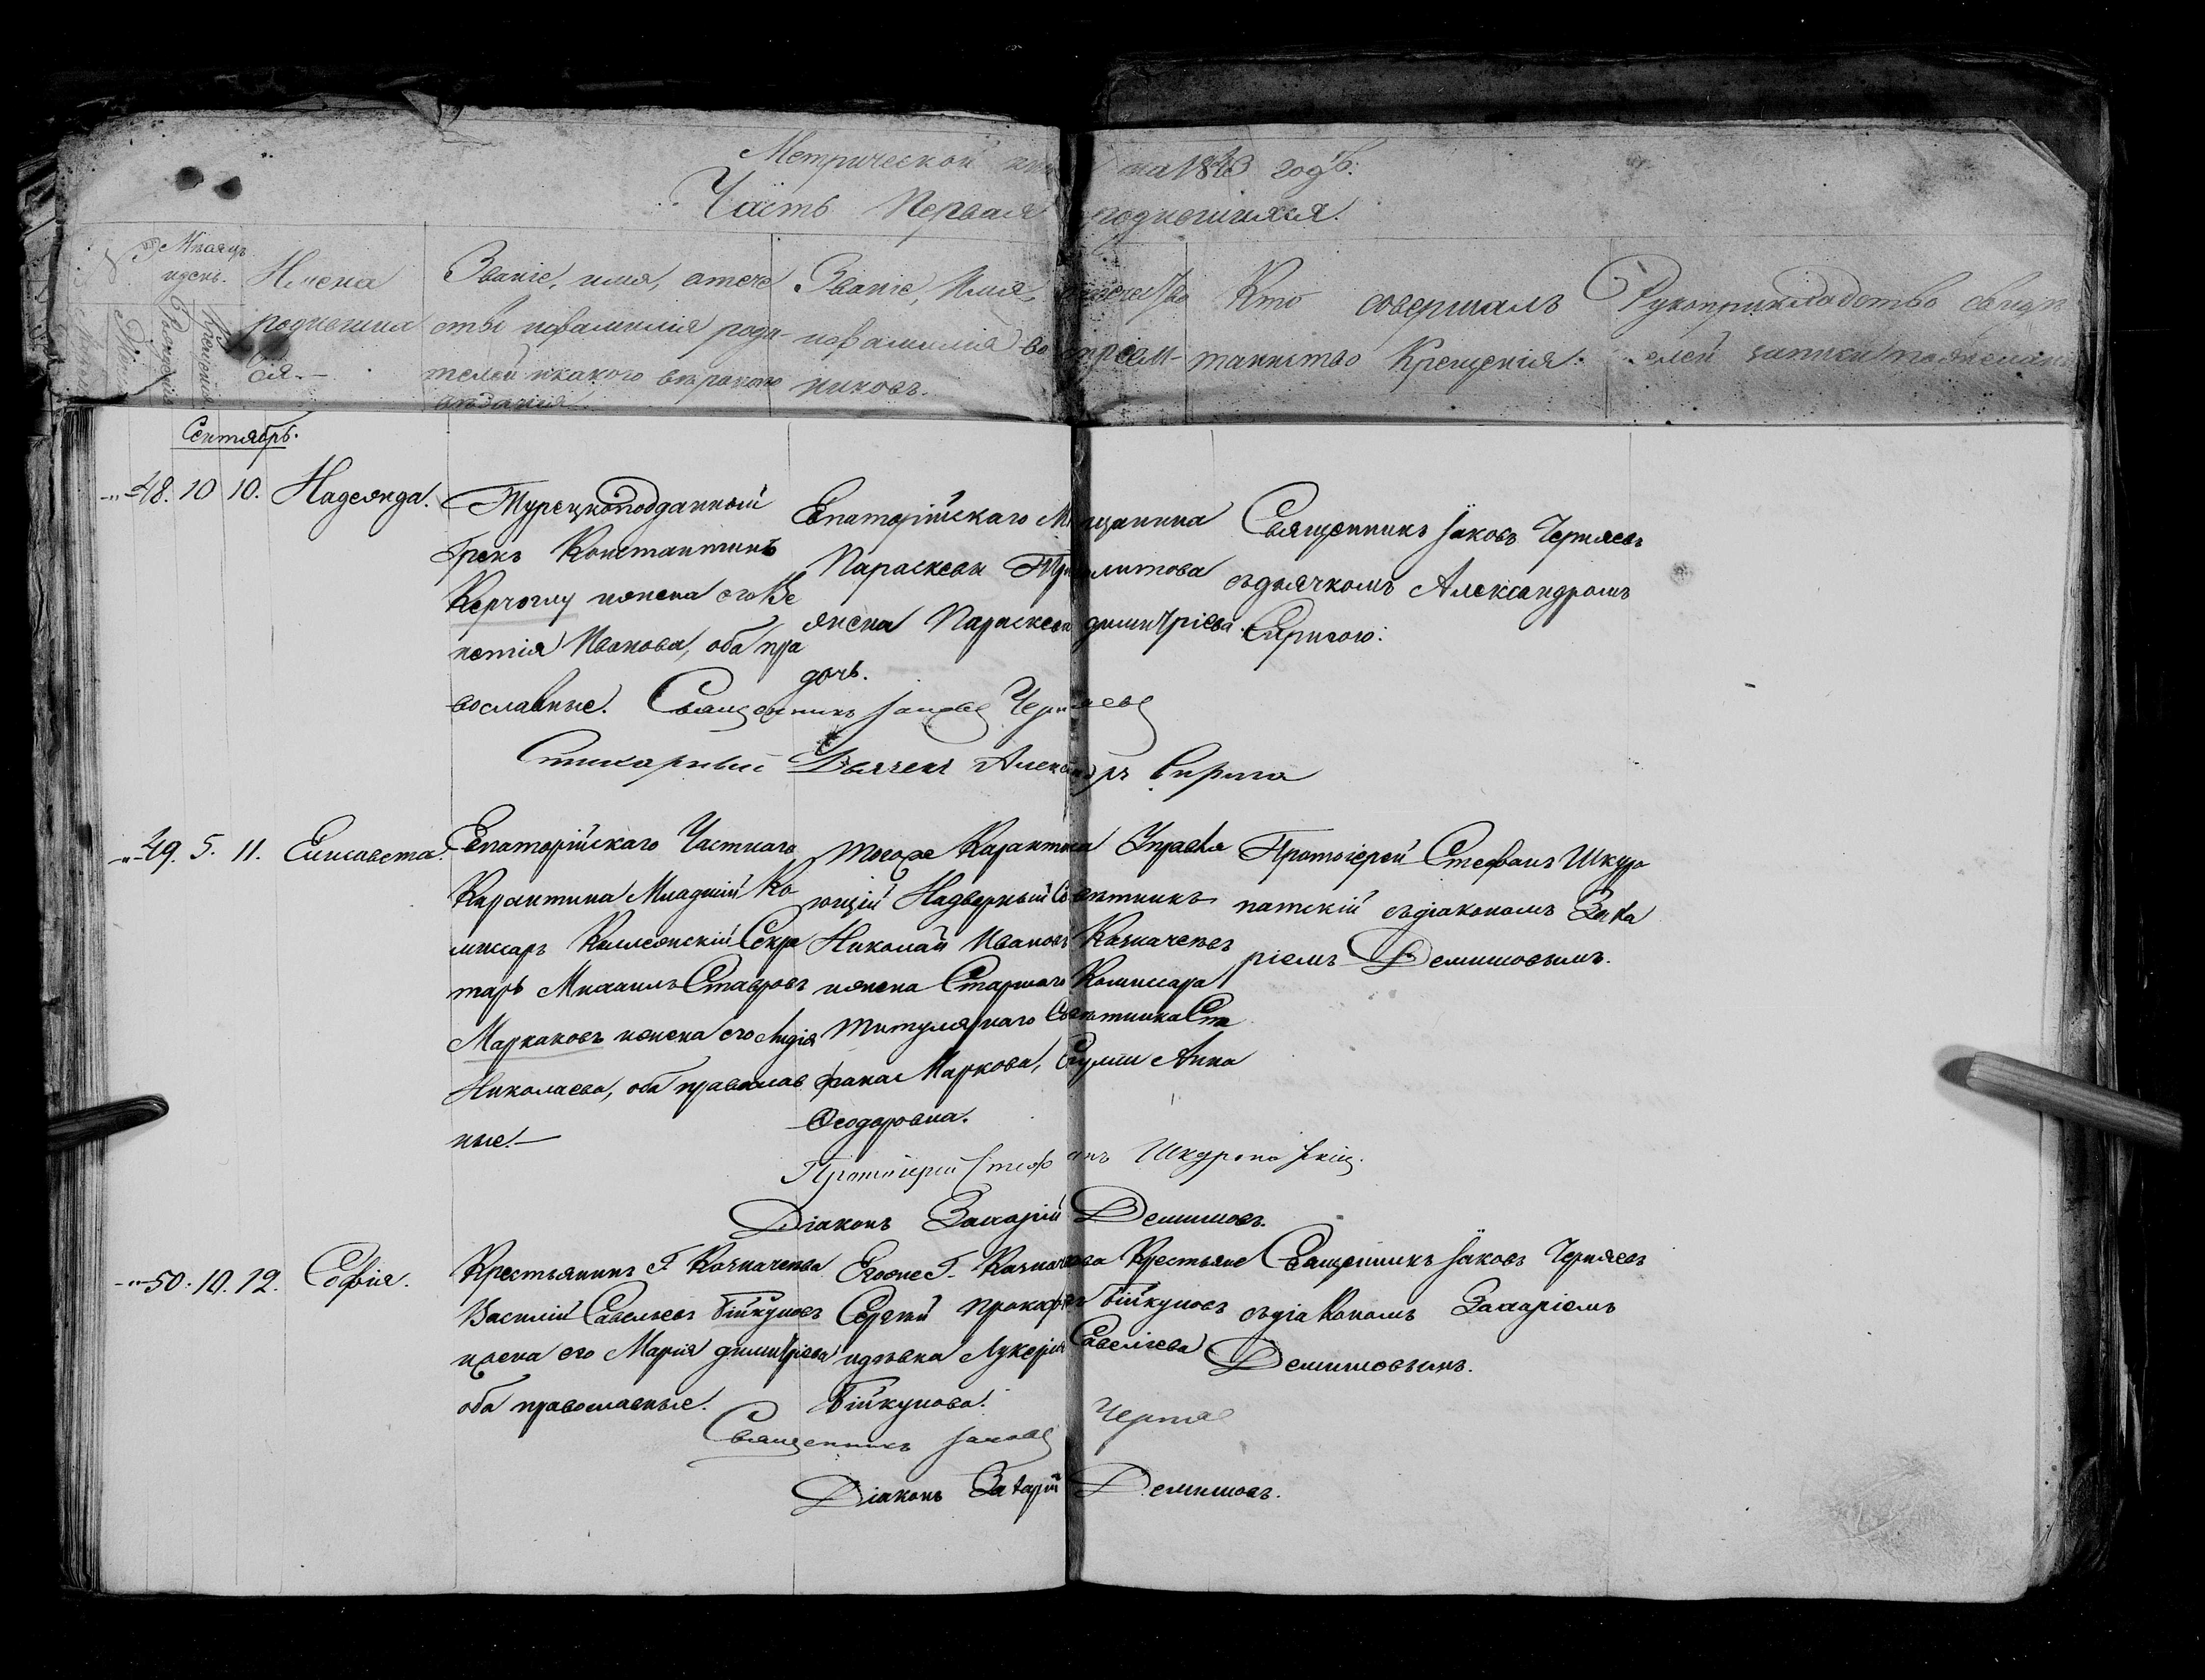 Метрической на 1843 годъ.
Часть Первая родившихся.
Мѣсяцъ и день.
Рожденія
Крещенія
Имена родившихся.
Званіе, имя, отечество и фамилія родителей и какого вѣроисповѣданія.
Званіе, Имя, отечество и фамилія воспріемниковъ.
Кто совершалъ таинство Крещенія.
Рукоприкладство свидѣтелей записи по желанію
Сентябрь.
48. 10 10. Надежда.
Турецкоподданный
Грекъ Константинъ
Керчоглу и жена его Ве
нетія Иванова, оба пра
вославные.
Евпаторійскаго Мѣщанина
Параскева
жена Параскева Димитріева
дочь.
Священникъ Іаковъ Чернявъ
съ дьячкомъ Александромъ
Сиригою.
Священникъ Іаковъ Чернявъ
Стихарный Дьячекъ Александръ Сирига
49. 5. 11. Елисавета.
Евпаторійскаго Частнаго
Карантина Младшій Ко
миссаръ Коллежскій Секре
тарь Михаилъ Ставровъ
Маркаковъ и жена его Лидія
Николаева, оба православ
ные.—
того же Карантина Управля
ющій Надворный Совѣтникъ
Николай Ивановъ Казначеевъ
и жена Старшаго Комиссара
Титулярнаго Совѣтника Сте
фана Маркова, Скулли Анна
Ѳеодоровна.
Протоіерей Стефанъ Шкуро
патскій съ діакономъ Заха
ріемъ Демишовымъ.
Протоіерей Стефанъ Шкуропатскій.
Діаконъ Захарій Демишовъ.
50. 10. 12. Софія.
Крестьянинъ Г. Казначеева
Василій Савельевъ Бійкуновъ
и жена его Марія Димитріева
оба православные.
Егоже Г. Казначеева Крестьяне
Сергѣй Прокофьевъ Бійкуновъ
и дѣвка Лукерія Савеліева
Бійкунова.
Священникъ Іаковъ Чернявъ
съ діакономъ Захаріемъ
Демишовымъ.
Священникъ Іаковъ Черняв
Діаконъ Захарій Демишовъ.